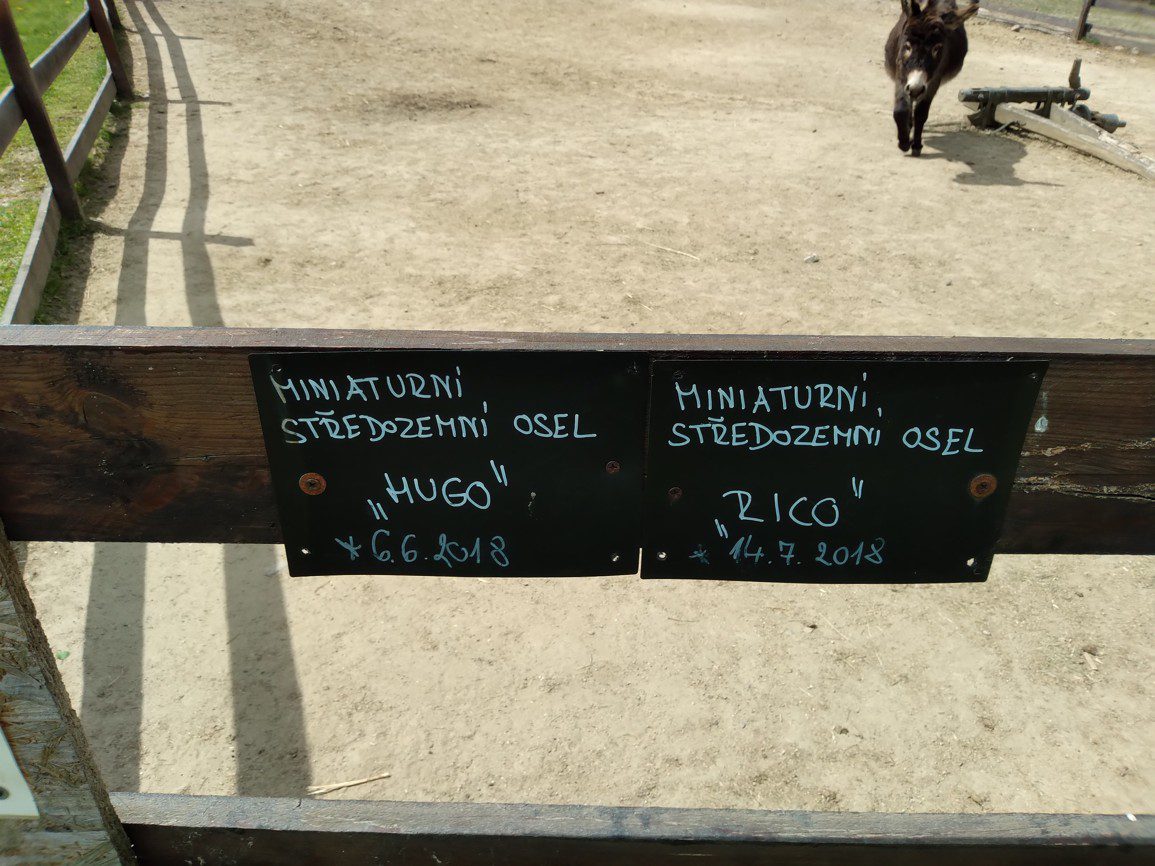 MINIATURNÍ
STŘEDOZEMNÍ OSEL
„HUGO"
* 6.6.2018
MINIATURNÍ
STŘEDOZEMNÍ OSEL
„RICO"
* 14.7.2018